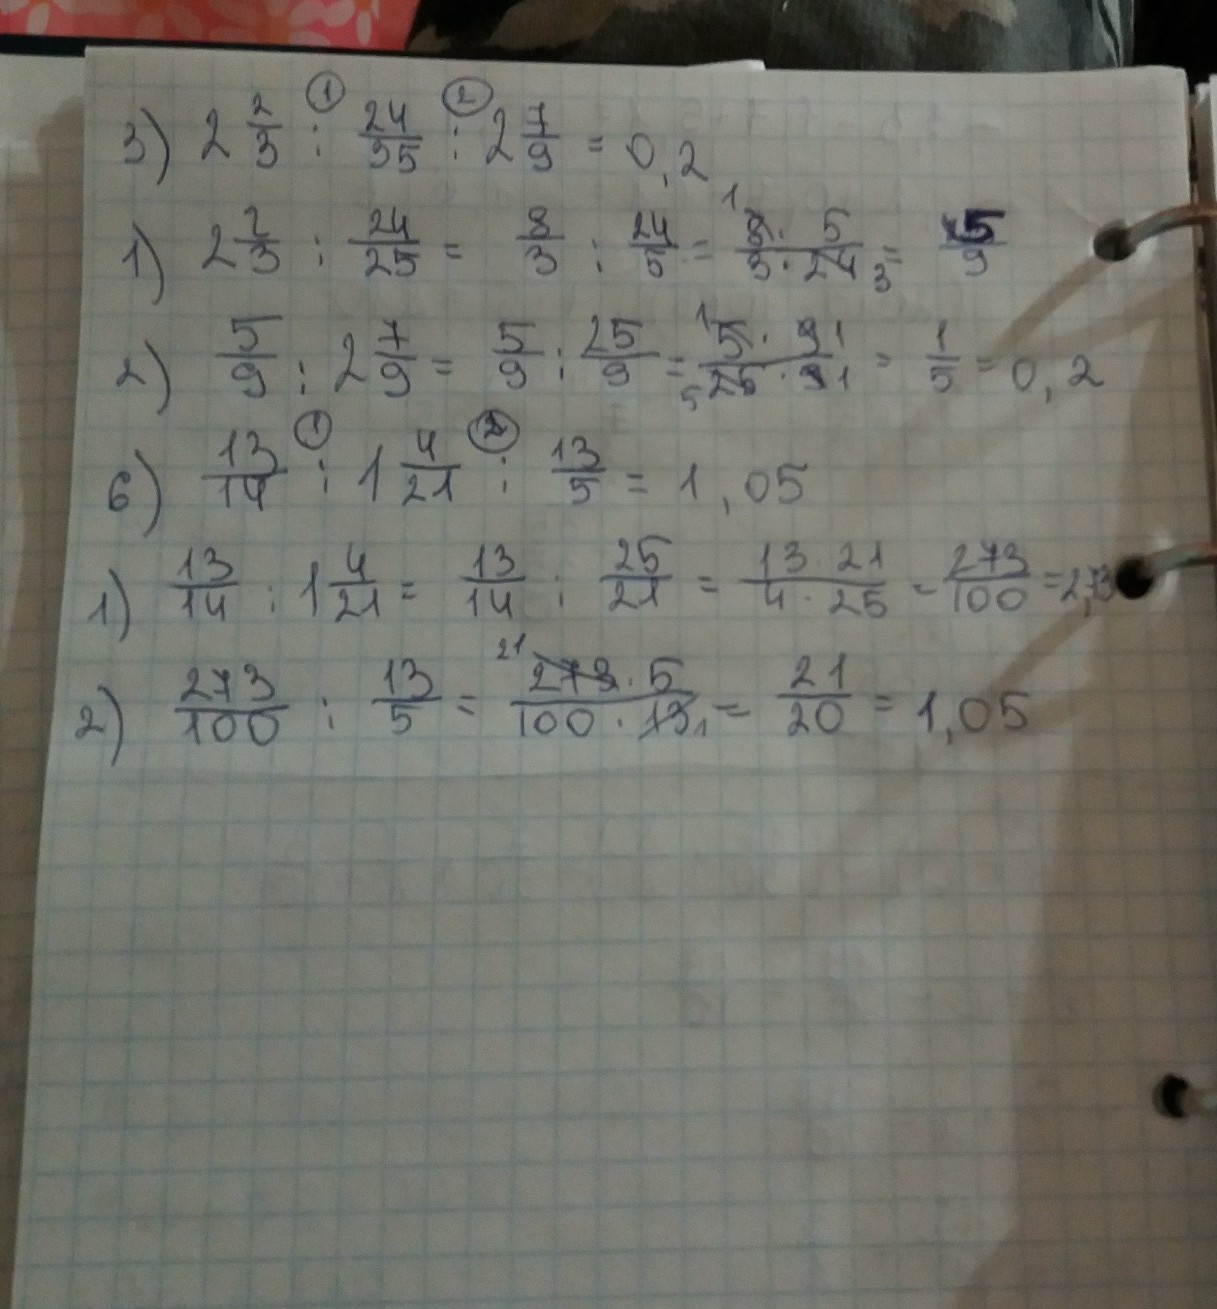 3) 2 2/3 : 24/35 : 2 7/9 = 0,2 ① ②
1) 2 2/3 : 24/25 = 8/3 : 24/5 = 8·5/3·24 = 5/9 1 3
2) 5/9 : 2 7/9 = 5/9 : 25/9 = 5·9/25·9 = 1/5 = 0,2 1 1 5 1
6) 13/14 : 1 4/21 : 13/5 = 1,05 ① ②
1) 13/14 : 1 4/21 = 13/14 : 25/21 = 13·21/4·25 - 273/100 = 2,73
2) 273/100 : 13/5 = 273·5/100·13 = 21/20 = 1,05 21 1